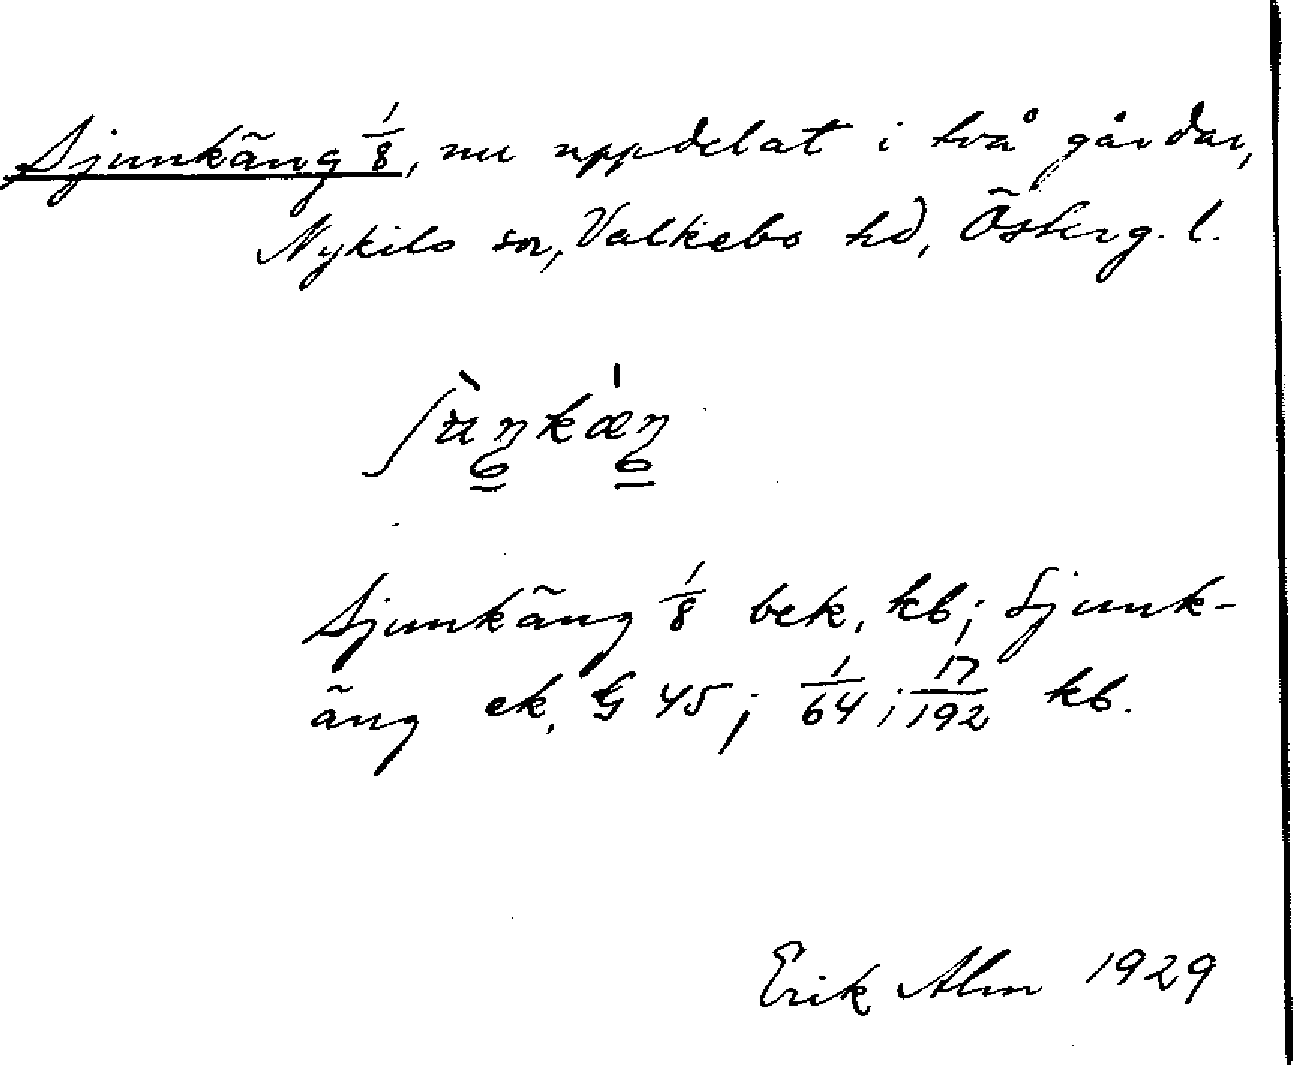 Sjunkäng 1/8, nu uppdelat i två gårdar,
Nykils sn, Valkebo hd, Österg. l.
ʃùŋkæ̍ŋ
Sjunkäng 1/8 bek. kb; Sjunk-
äng ek. G 45; 1/64; 17/192 kb.
Erik Alm 1929